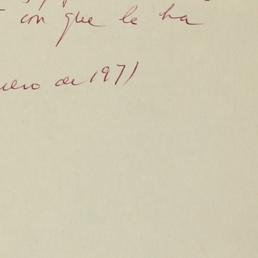 con que le ha
ero de 1971